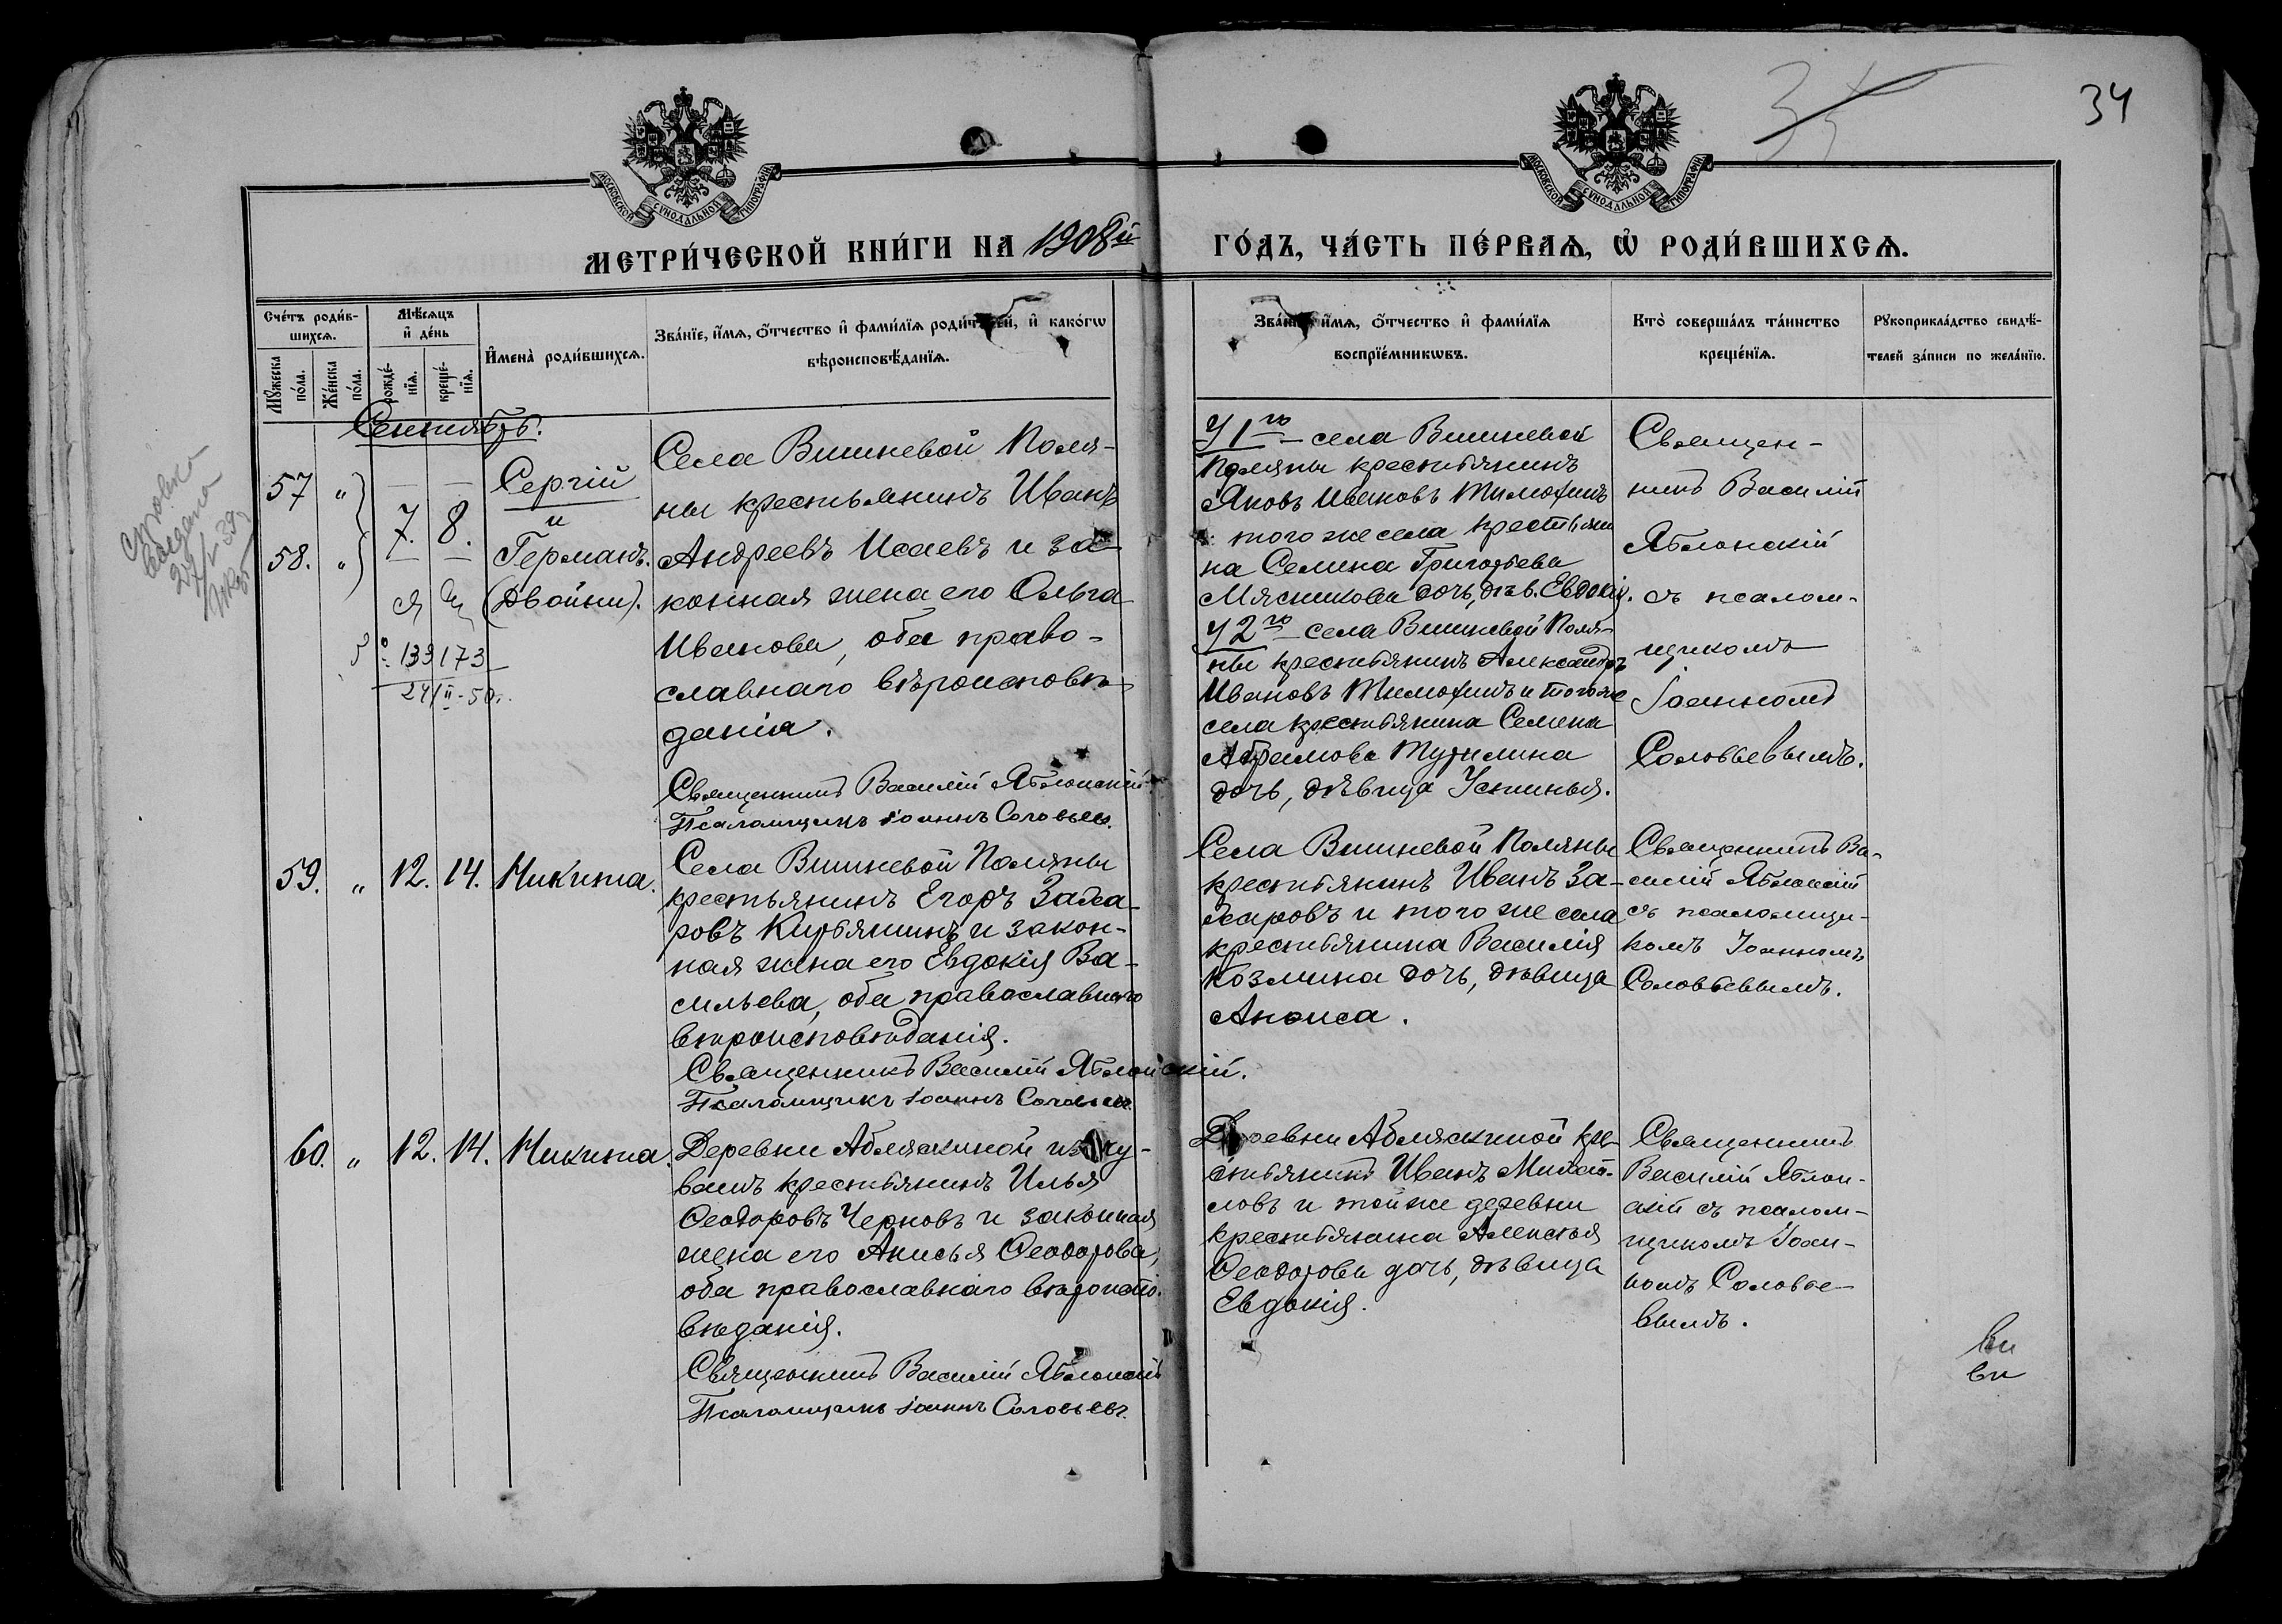 34
МОСКОВСКОЙ СУНОДАЛЬНОЙ ТИПОГРАФІИ
МОСКОВСКОЙ СУНОДАЛЬНОЙ ТИПОГРАФІИ
МЕТРИ́ЧЕСКОЙ КНИ́ГИ НА 1908й
ГО́ДЪ, ЧА́СТЬ ПЕ́РВАѦ, Ѡ҆ РОДИ́ВШИХСѦ.
Сче́тъ роди́в-
шихсѧ.
Мꙋ́жеска по́ла.
Же́нска по́ла.
Мѣ́сѧцъ
и҆ де́нь
рожде́-
нїѧ.
креще́-
нїѧ.
И҆мена̀ роди́вшихсѧ.
Зва́нїе, и҆́мѧ, ѻ҆́тчество и҆ фами́лїѧ роди́телей, и҆ како́гѡ
вѣроисповѣ́данїѧ.
Зва́нїе, и҆́мѧ, ѻ҆́тчество и҆ фами́лїѧ
воспрїе́мникѡвъ.
Кто̀ соверша́лъ та́инство
креще́нїѧ.
Рꙋкоприкла́дство свидѣ́-
телей за́писи по жела́нїю.
Сентябрь.
57 "
58. "
7. 8.
Сергій
и
Германъ.
(Двойни).
133173
24/II-50г.
Села Вишневой Поля-
ны крестьянинъ Иванъ
Андреевъ Исаевъ и за-
конная жена его Ольга
Иванова, оба право-
славнаго вѣроисповѣ-
данія.
Священникъ Василій Яблонскій
Псаломщикъ Іоаннъ Соловьевъ.
У 1го села Вишневой
Поляны крестьянинъ
Яковъ Ивановъ Тимофинъ
и того же села крестьяни
на Семена Григорьева
Мясникова дочь, дѣв. Евдокія.
У 2го села Вишневой Поля-
ны крестьянинъ Александръ
Ивановъ Тимофинъ и того же
села крестьянина Семена
Абрамова Турилина
дочь, дѣвица Устинья.
Священ-
никъ Василій
Яблонскій
съ псалом-
щикомъ
Іоанномъ
Соловьевымъ.
59. " 12. 14. Никита.
Села Вишневой Поляны
крестьянинъ Егоръ Заха-
ровъ Кирьянинъ и закон-
ная жена его Евдокія Ва-
сильева, оба православнаго
вѣроисповѣданія.
Священникъ Василій Яблонскій.
Псаломщикъ Іоаннъ Соловьевъ.
Села Вишневой Поляны
крестьянинъ Иванъ За-
харовъ и того же села
крестьянина Василія
Козмина дочь, дѣвица
Анфиса.
Священникъ Ва-
силій Яблонскій
съ псаломщи-
комъ Іоанномъ
Соловьевымъ.
60. " 12. 14. Никита.
Деревни Абляскиной из чу-
вашъ крестьянинъ Илья
Ѳеодоровъ Черновъ и законная
жена его Анисья Ѳеодорова,
оба православнаго вѣроиспо-
вѣданія.
Священникъ Василій Яблонскій
Псаломщикъ Іоаннъ Соловьевъ.
Деревни Абляскиной кре-
стьянинъ Иванъ Михай-
ловъ и той же деревни
крестьянина Алексѣя
Ѳеодорова дочь, дѣвица
Евдокія.
Священникъ
Василій Яблон-
скій съ псалом-
щикомъ Іоан-
номъ Соловье-
вымъ.